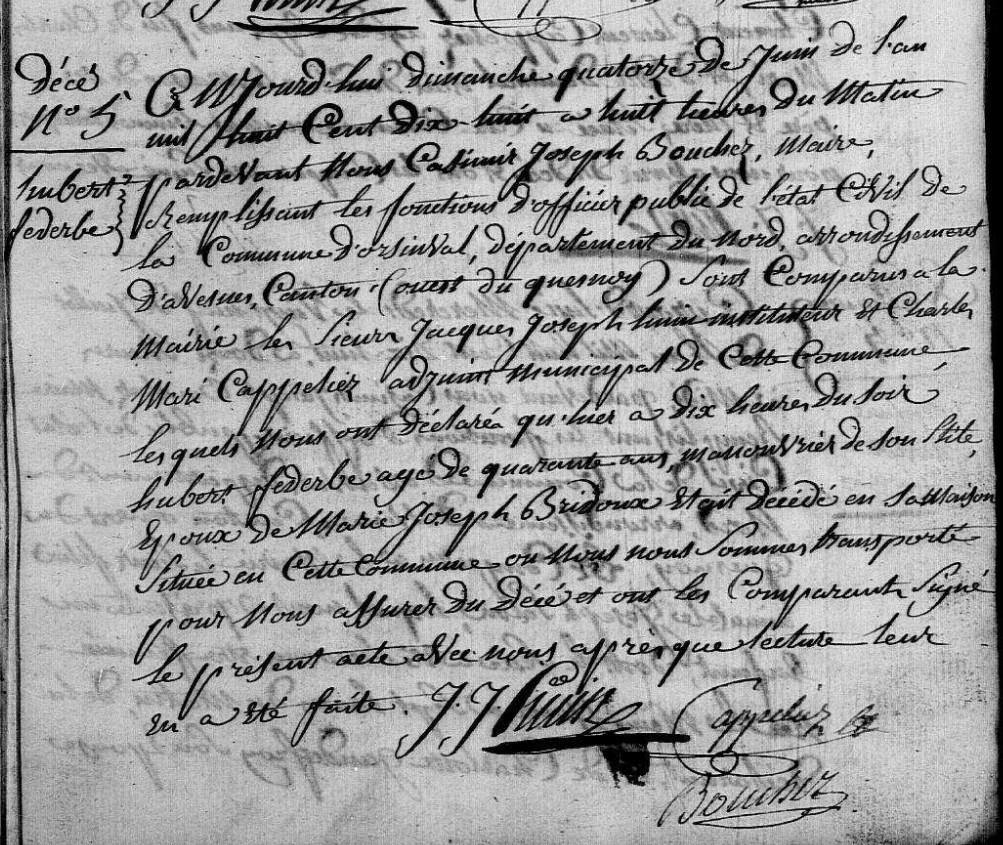 décès
N° 5
hubert
féderbe
Ce Aujourd'hui dimanche quatorze de Juin de l'an
mil huit Cent dix huit a huit heures du Matin
pardevant Nous Casimir Joseph Bouchez, Maire,
Remplissant les fonctions d'officier public de l'état Civil de
la Commune d'orsinval, département du Nord, arrondissement
D'avesnes, Canton (ouest du quesnoy) Sont Comparus a la
Mairie les Sieurs Jacques Joseph huin instituteur Et Charles
Mari Cappeliez adjoint municipal de Cette Commune
lesquels Nous ont déclaréa qu'hier a dix heures du soir
hubert féderbe agé de quarante ans, manouvrier de son Stile,
Epoux de Marie Joseph Bridoux Etait décédé en sa Maison
Située en Cette Commune ou Nous nous Sommes transporté
pour Nous assurer du Décé et ont les Comparants Signé
le présent acte aVec nous après que lecture leur
en a été faite. J. J. huin Cappeliez
Bouchez